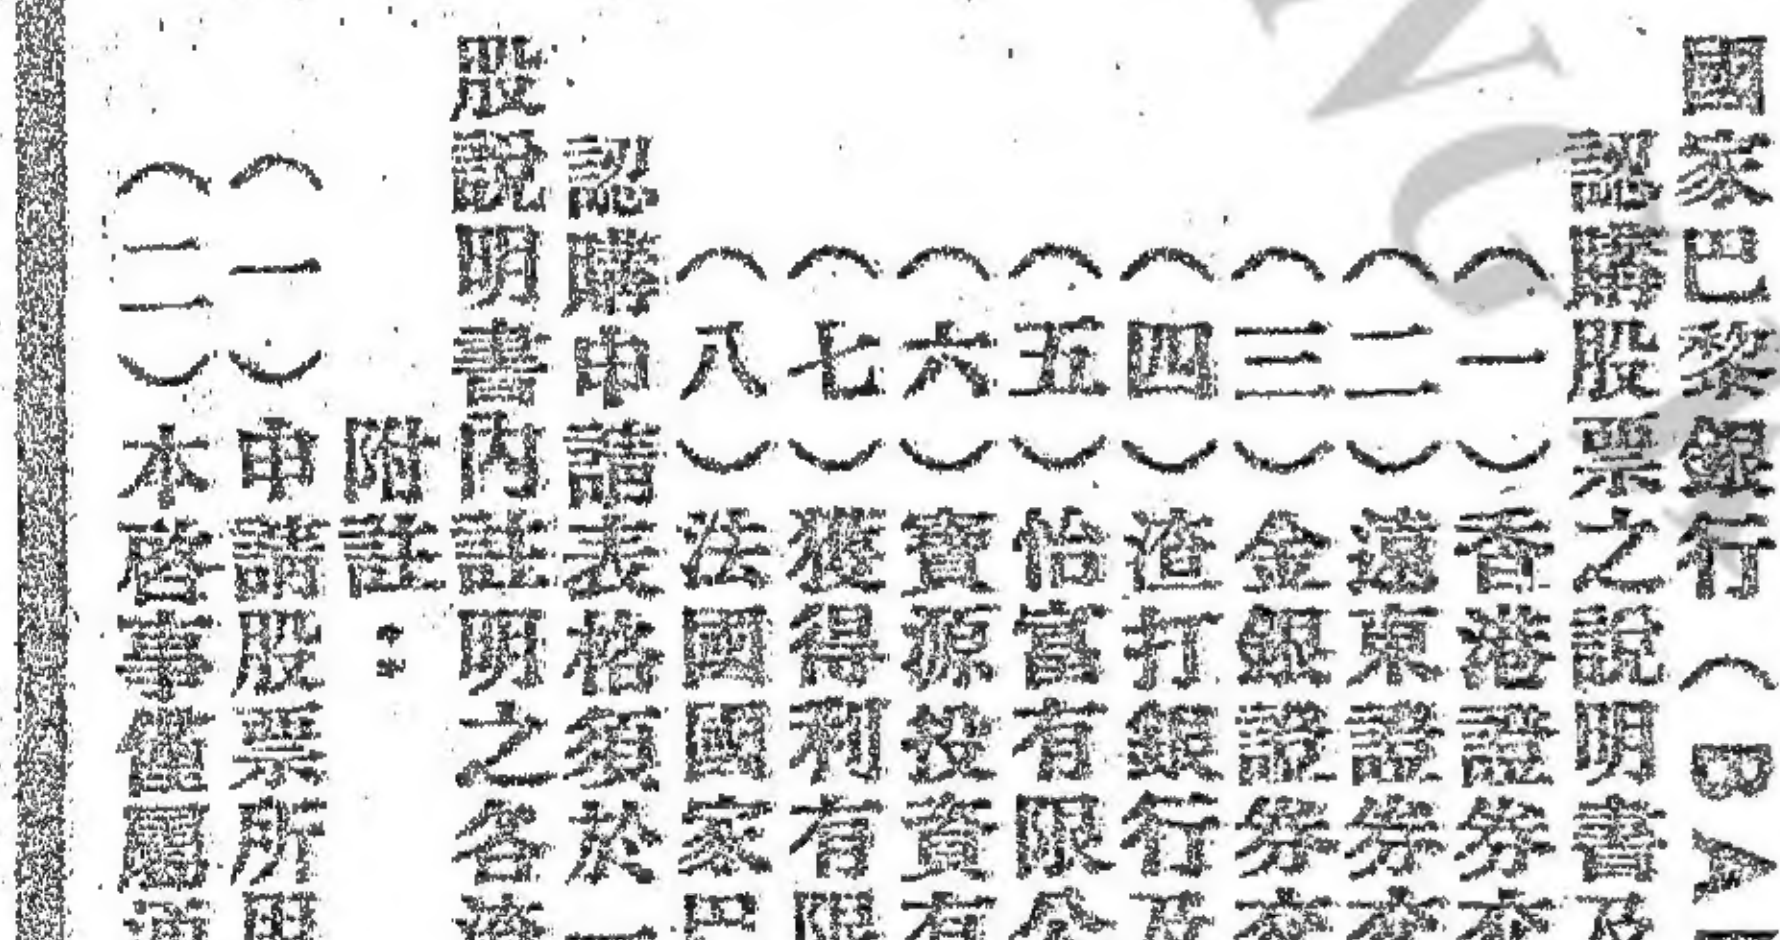 國家巴黎銀行（BA
認購股票之說明書及
（一）香港證券交
（二）遠東證券交
（三）金銀證券交
（四）渣打銀行及
（五）怡富有限公
（六）寶源投資有
（七）獲得利有限
（八）法國國家巴
認購申請表格須於一
股說明書內註明之各
附註：
（一）申請股票所用
（二）本啓事僅屬通